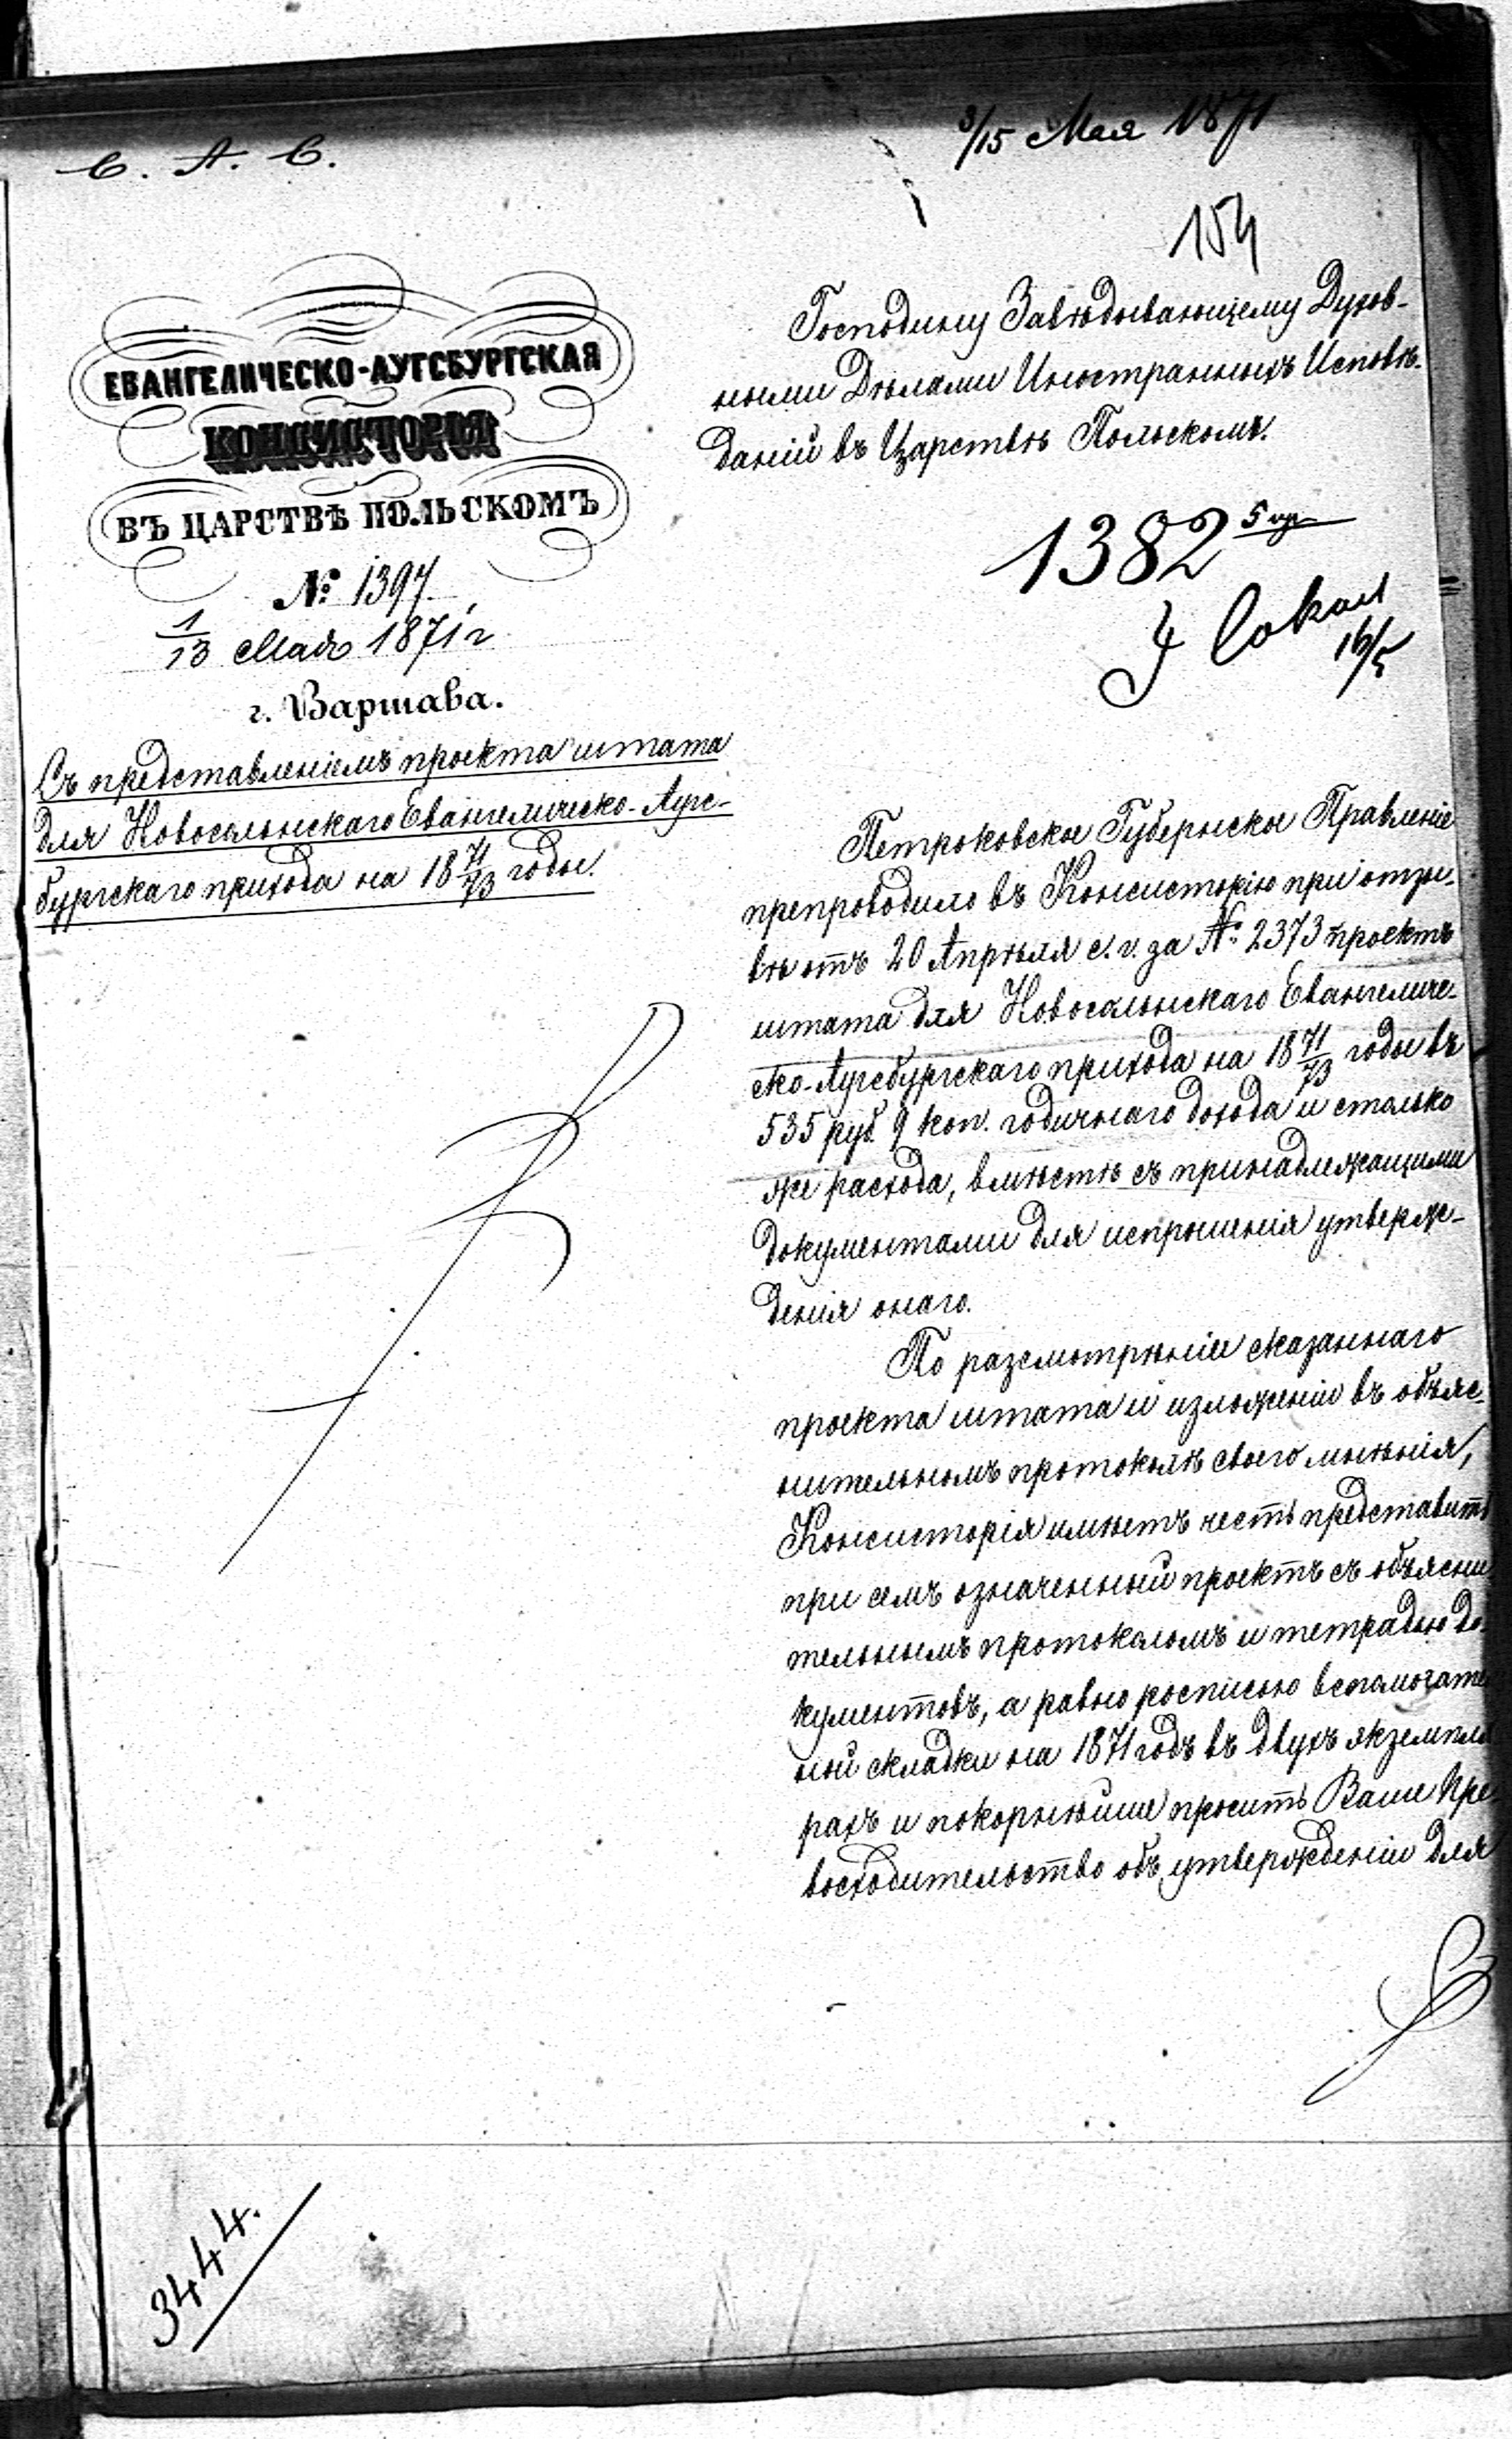 С. А. С.
3/15 Мая 1871
154
ЕВАНГЕЛИЧЕСКО-АУГСБУРГСКАЯ
КОНСИСТОРІЯ
ВЪ ЦАРСТВѢ ПОЛЬСКОМЪ
№ 1397
1/13 Мая 1871 г
г. Варшава.
Съ представленіемъ проекта штата
для Новосольнскаго Евангелическо-Аугс-
бургскаго прихода на 18 71/73 годы.
Господину Завѣдывающему Духов-
ными Дѣлами Иностранныхъ Исповѣ-
даній въ Царствѣ Польскомъ.
1382
16/5
Петроковское Губернское Правленіе
препроводило въ Консисторію при отзы-
вѣ отъ 20 Апрѣля с. г. за № 2373 проектъ
штата для Новосольнскаго Евангеличе-
ско-Аугсбургскаго прихода на 18 71/73 годы въ
535 руб. 9 коп. годичнаго дохода и столько
же расхода, вмѣстѣ съ принадлежащими
документами для испрошенія утверж-
денія онаго.
По разсмотрѣніи сказаннаго
проекта штата и изложеніи въ объяс-
нительномъ протоколѣ своего мнѣнія,
Консисторія имѣетъ честь представить
при семъ означенный проектъ съ объясни
тельнымъ протоколомъ и тетрадью до-
кументовъ, а равно росписью вспомогатель
ной складки на 1871 годъ въ двухъ экземпля
рахъ и покорнѣйше просить Ваше Пре
восходительство объ утвержденіи для
3444.